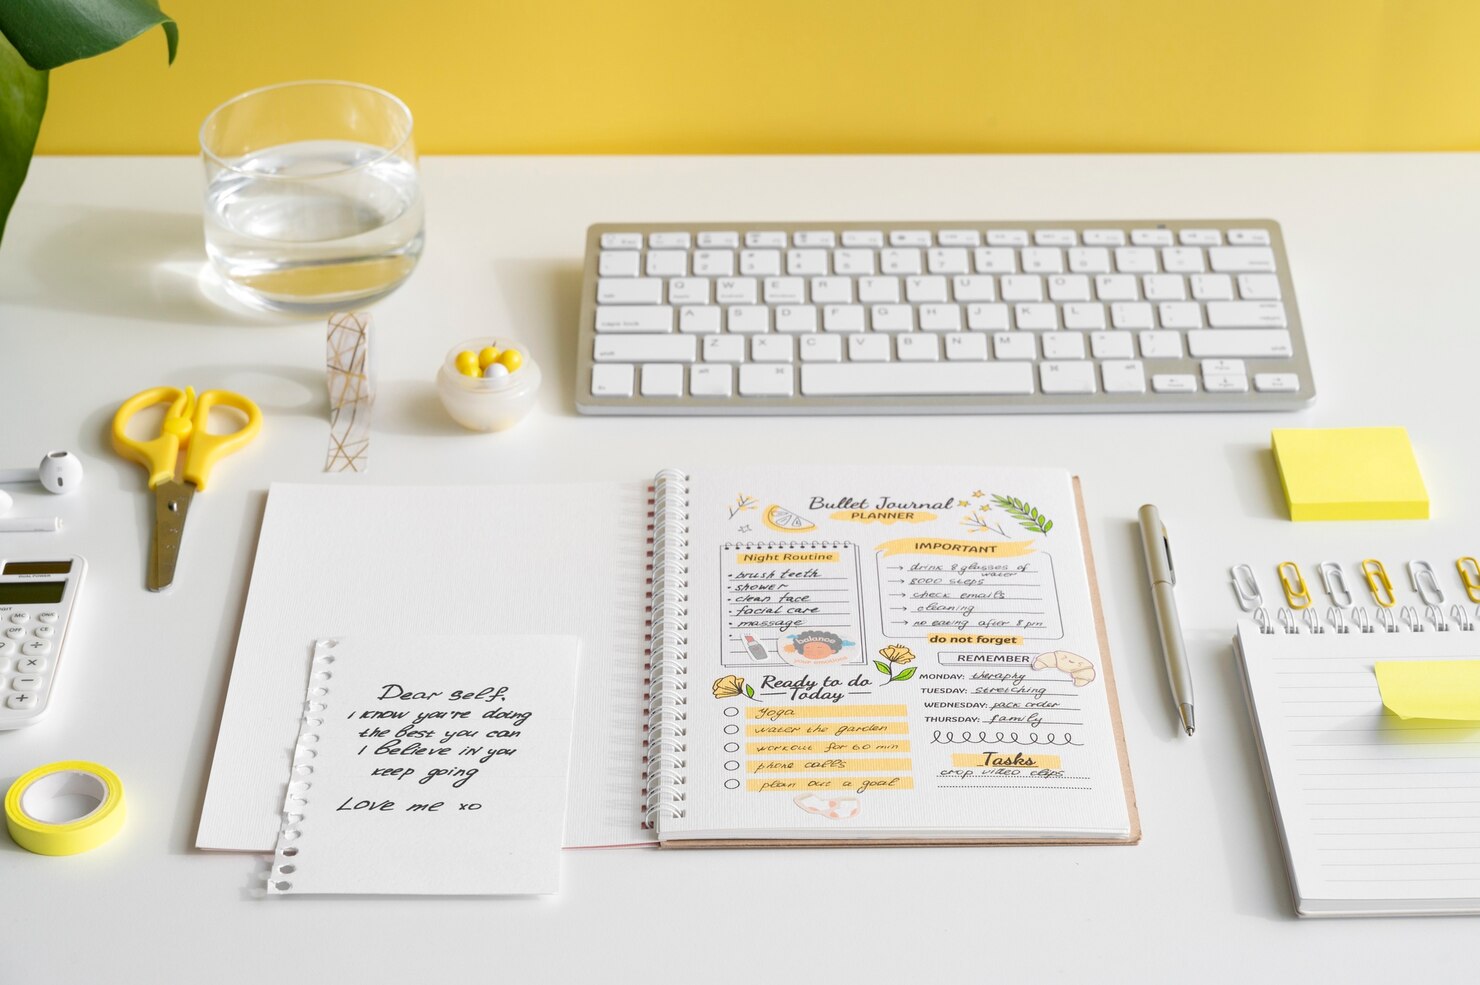 Dear self,
I know you're doing
the best you can
I believe in you
keep going
Love me xo
Bullet Journal
PLANNER
Night Routine
• brush teeth
• shower
• clean face
• facial care
• massage
balance
your emotions
IMPORTANT
→ drink 8 glasses of
water
→ 8000 steps
→ check emails
→ cleaning
→ no eating after 8 pm
do not forget
REMEMBER
MONDAY: theraphy
TUESDAY: stretching
WEDNESDAY: pack order
THURSDAY: family
Ready to do
Today
Yoga
water the garden
workout for 60 min
phone calls
plan out a goal
Tasks
crop video clips
Q W E R T Y U I O P
A S D F G H J K L
caps lock
Z X C V B N M
shift
alt
⌘
⌘
alt
MC
ON/C
OFF
CE